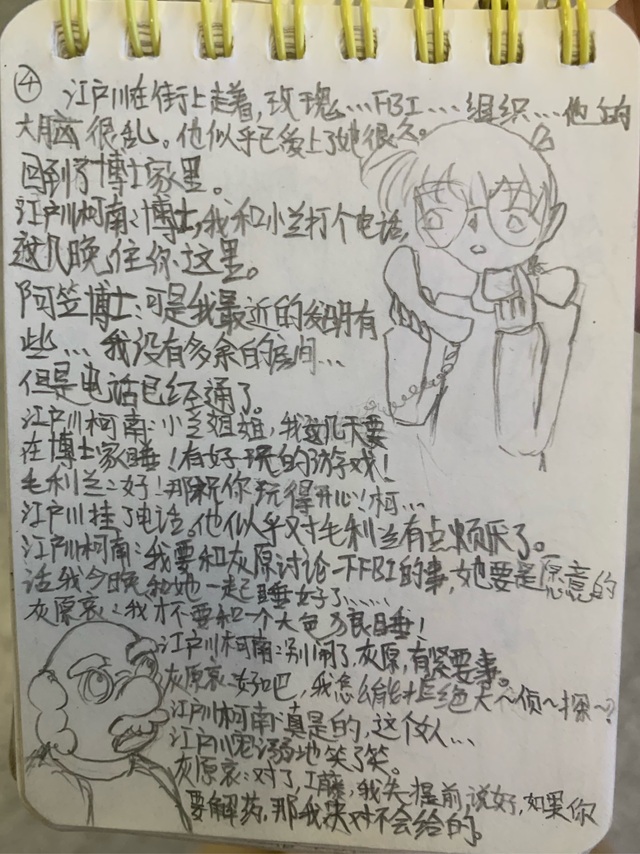 ④ 江户川在街上走着,玫瑰…FBI…组织…他的
大脑很乱。他似乎已爱上了她很久。
回到了博士家里。
江户川柯南:博士,我和小兰打个电话,
这几晚住你这里。
阿笠博士:可是我最近的发明有
些…我没有多余的房间…
但是电话已经通了。
江户川柯南:小兰姐姐,我这几天要
在博士家睡!有好玩的游戏!
毛利兰:好!那祝你玩得开心!柯…
江户川挂了电话。他似乎对毛利兰有点烦厌了。
江户川柯南:我要和灰原讨论一下FBI的事,她要是愿意的
话我今晚和她一起睡好了……
灰原哀:我才不要和一个大色狼睡!
江户川柯南:别闹了,灰原,有紧要事。
灰原哀:好吧,我怎么能拒绝大~侦~探~?
江户川柯南:真是的,这个女人…
江户川宠溺地笑了笑。
灰原哀:对了,工藤,我先提前说好,如果你
要解药,那我决对不会给的。